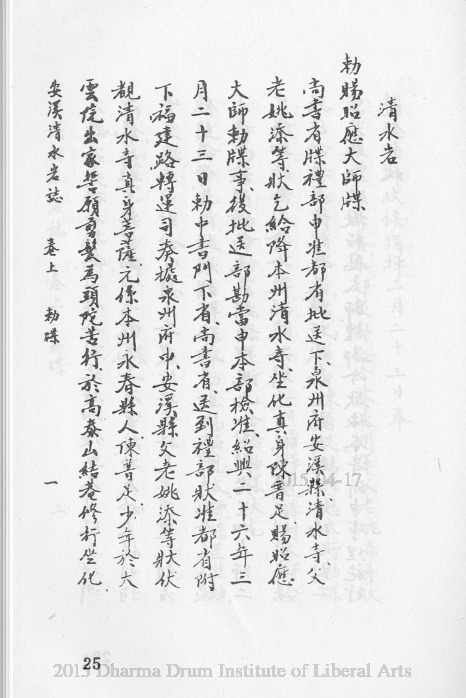 清水岩
勅賜昭應大師牒
尚書省牒禮部申准都省批送下泉州府安溪縣清水寺父
老姚添等狀乞給降本州清水寺坐化真身陳普足賜昭應
大師勅牒事後批送部勘當申本部檢准紹興二十六年三
月二十三日勅中書門下省尚書省送到禮部狀准都省附
下福建路轉運司奏據泉州府申安溪縣父老姚添等狀伏
覩清水寺真身菩薩元係本州永春縣人陳普足少年於大
雲院出家誓願剪髮為頭陀苦行於高泰山結菴修行坐化
安溪清水岩誌 卷上 勅牒 一
2015-04-17
25
2015 Dharma Drum Institute of Liberal Arts